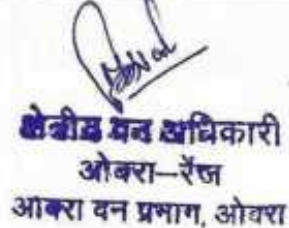 क्षेत्रीय वन अधिकारी
ओबरा–रेंज
ओबरा वन प्रभाग, ओबरा